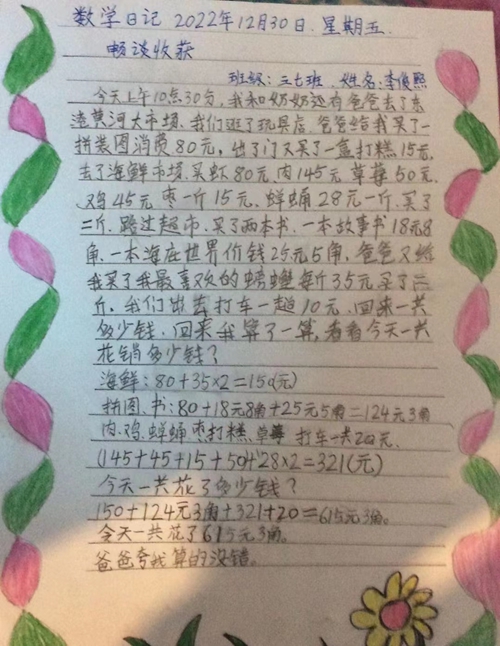 数学日记 2022年12月30日.星期五.
畅谈收获
班级:三七班.姓名:李俊熙
今天上午10点30分,我和奶奶还有爸爸去了
黄河大市场.我们逛了玩具店.爸爸给我买了一
拼装图消费80元,出了门又买了一盒打糕15元.
去了海鲜市场.买虾80元,肉145元草莓50元.
鸡45元.枣一斤15元.蝉蛹28元一斤.买了
二斤.路过超市.买了两本书.一本故事书18元8
角.一本海底世界价钱25元5角,爸爸又给
我买了我最喜欢的螃蟹每斤35元买了二
斤.我们出去打车一趟10元.回来一共
多少钱.回来我算了一算,看看今天一共
花销多少钱?
海鲜:80+35×2=150(元)
拼图.书:80+18元8角+25元5角=124元3角
肉.鸡.蝉蛹枣打糕.草莓 打车一共20元.
(145+45+15+50+28×2=321(元)
今天一共花了多少钱?
150+124元3角+321+20=615元3角。
今天一共花了615元3角。
爸爸夸我算的没错。